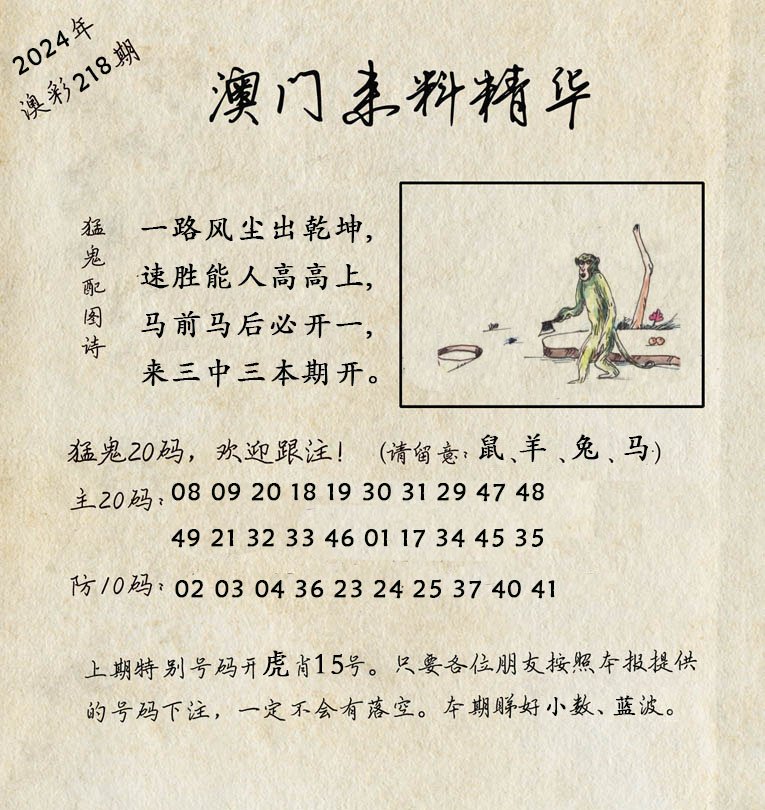 2024年
澳彩218期
澳门来料精华
猛鬼配图诗
一路风尘出乾坤，
速胜能人高高上，
马前马后必开一，
来三中三本期开。
猛鬼20码，欢迎跟注！（请留意：鼠、羊、兔、马）
主20码：08 09 20 18 19 30 31 29 47 48
49 21 32 33 46 01 17 34 45 35
防10码：02 03 04 36 23 24 25 37 40 41
上期特别号码开虎肖15号。只要各位朋友按照本报提供
的号码下注，一定不会有落空。本期睇好小数、蓝波。